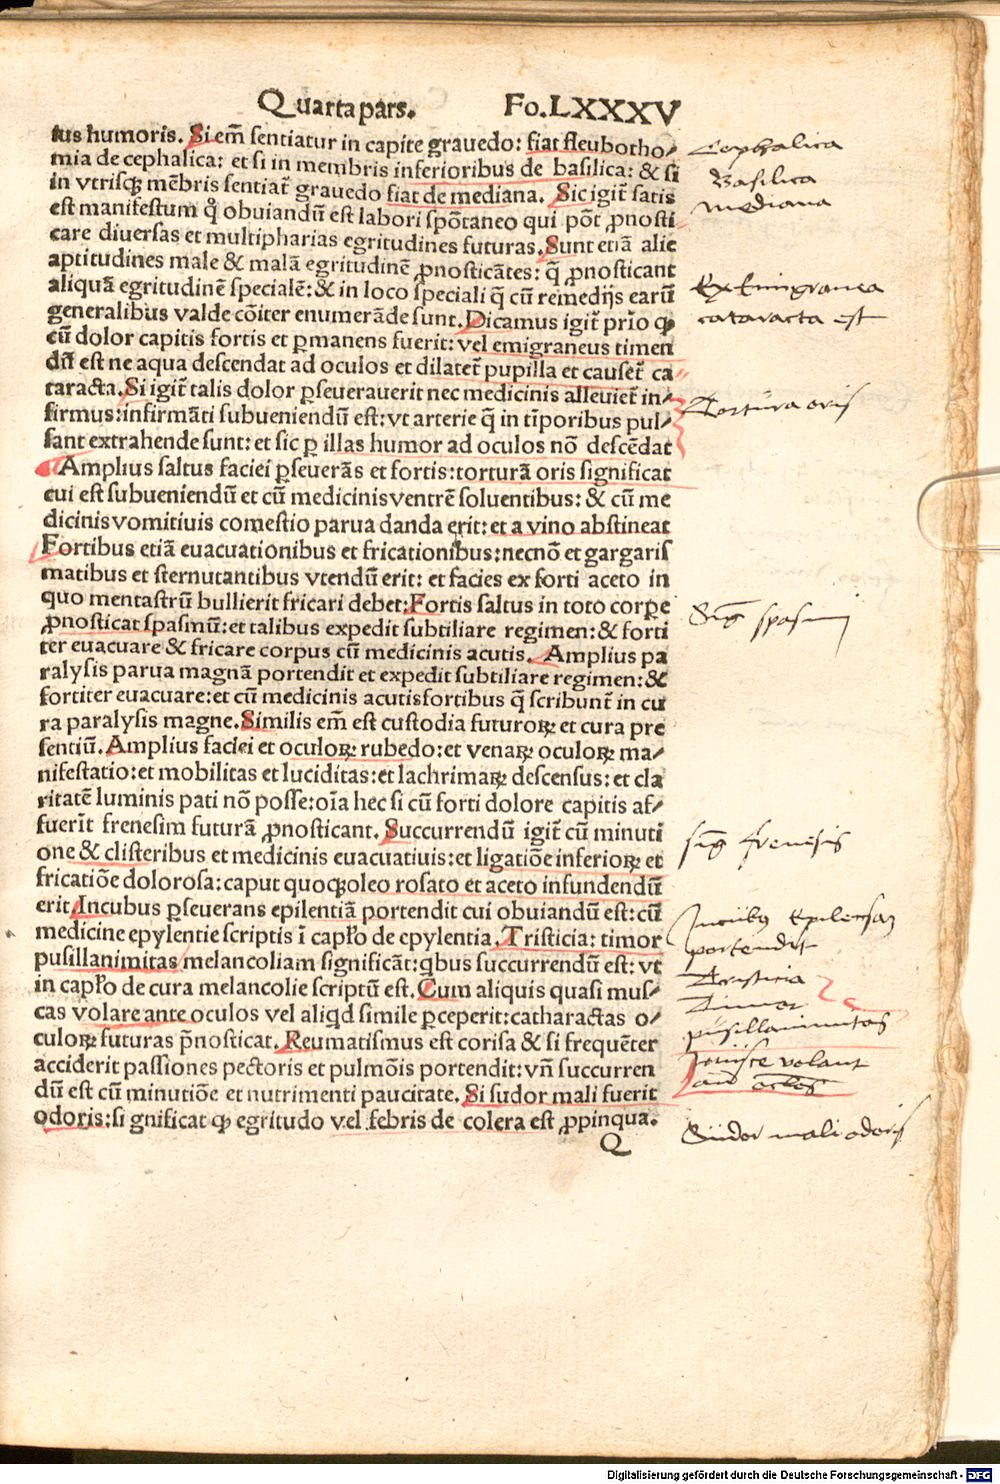 Quarta pars. Fo.LXXXV
tus humoris. Si em̄ sentiatur in capite grauedo: fiat fleubotho⸗
mia de cephalica: et si in membris inferioribus de basilica: & si
in vtrisqꝫ mēbris sentiat̄ grauedo fiat de mediana. Sic igit̄ satis
est manifestum ꝙ̄ obuiandū est labori spōtaneo qui pōt ꝓnosti⸗
care diuersas et multipharias egritudines futuras. Sunt etiā alie
aptitudines male & malā egritudinē ꝓnosticātes: q̄ ꝓnosticant
aliquā egritudinē specialē: & in loco speciali q̄ cū remedijs earū
generalibus valde cōiter enumerāde sunt. Dicamus igit̄ prīo ꝙ
cū dolor capitis fortis et ꝑmanens fuerit: vel emigraneus timen
dū est ne aqua descendat ad oculos et dilatet̄ pupilla et causet̄ ca⸗
taracta. Si igit̄ talis dolor ꝑseuerauerit nec medicinis alleuiet̄ in⸗
firmus: infirmāti subueniendū est: vt arterie q̄ in tīporibus pul⸗
sant extrahende sunt: et sic ꝑ illas humor ad oculos nō descēdat
Amplius saltus faciei ꝑseuerās et fortis: torturā oris significat
cui est subueniendū et cū medicinis ventrē soluentibus: & cū me
dicinis vomitiuis comestio parua danda erit: et a vino abstineat
Fortibus etiā euacuationibus et fricationibus: necnō et gargaris
matibus et sternutantibus vtendū erit: et facies ex forti aceto in
quo mentastrū bullierit fricari debet: Fortis saltus in toto corꝑe
ꝓnosticat spasmū: et talibus expedit subtiliare regimen: & forti
ter euacuare & fricare corpus cū medicinis acutis. Amplius pa
ralysis parua magnā portendit et expedit subtiliare regimen: &
fortiter euacuare: et cū medicinis acutis fortibus q̄ scribunt̄ in cu
ra paralysis magne. Similis em̄ est custodia futuroꝝ et cura pre
sentiū. Amplius faciei et oculoꝝ rubedo: et venaꝝ oculoꝝ ma⸗
nifestatio: et mobilitas et luciditas: et lachrimaꝝ descensus: et cla
ritatē luminis pati nō posse: oīa hec si cū forti dolore capitis af⸗
fuerīt frenesim futurā ꝓnosticant. Succurrendū igit̄ cū minuti
one & clisteribus et medicinis euacuatiuis: et ligatiōe inferioꝝ et
fricatiōe dolorosa: caput quoqꝫ oleo rosato et aceto infundendū
erit. Incubus ꝑseuerans epilentiā portendit cui obuiandū est: cū
medicine epylentie scriptis ī cap̄lo de epylentia. Tristicia: timor
pusillanimitas melancoliam significāt: qbus succurrendū est: vt
in cap̄lo de cura melancolie scriptū est. Cum aliquis quasi mus⸗
cas volare ante oculos vel aliqd simile ꝑceperit: catharactas o⸗
culoꝝ futuras p̄nosticat. Reumatismus est corisa & si frequēter
acciderit passiones pectoris et pulmōis portendit: vn̄ succurren
dū est cū minutiōe et nutrimenti paucitate. Si sudor mali fuerit
odoris: significat ꝙ egritudo vel febris de colera est ꝓpinqua.
Q
Cephalica
Basilica
mediana
Ex Emigranea
cataracta est
Tortura oris
Sig̅ spasmi
sig̅ frenesis
Incubus Epilensiaz
portendit
Tristicia
Timor
pusillanimitas
volant
Sudor mali odoris
Digitalisierung gefördert durch die Deutsche Forschungsgemeinschaft - DFG